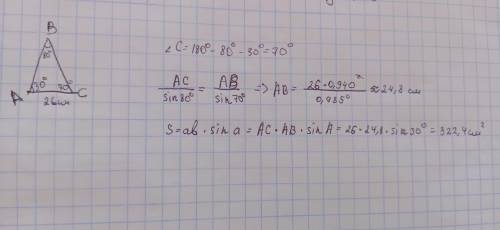 B
80°
A 30° 70° C
26см
∠C = 180° - 80° - 30° = 70°
AC/sin80° = AB/sin70° => AB = 26·0,940°/0,985° ≈ 24,8 см
S = ab · sin a = AC · AB · sin A = 26 · 24,8 · sin 30° = 322,4 см²